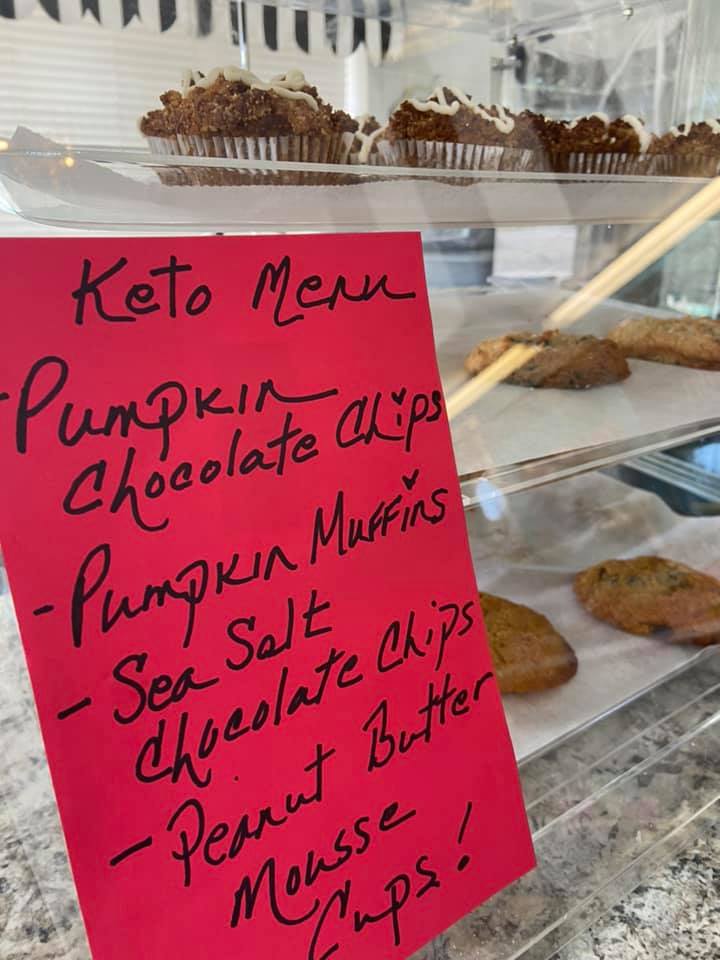 Keto Menu
- Pumpkin
Chocolate Chips
- Pumpkin Muffins
- Sea Salt
Chocolate Chips
- Peanut Butter
Mousse
Cups!